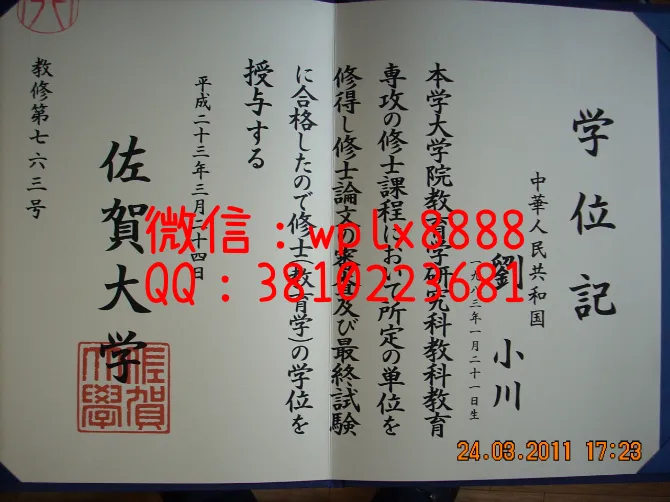 学位記
中華人民共和国
劉小川
一九八三年一月二十一日生
本学大学院教育学研究科教科教育
専攻の修士課程において所定の単位を
修得し修士論文の審査及び最終試験
に合格したので修士(教育学)の学位を
授与する
平成二十三年三月二十四日
佐賀大学
教修第七六三号
佐賀大學
微信：wplx8888
QQ：3810223681
24.03.2011 17:23